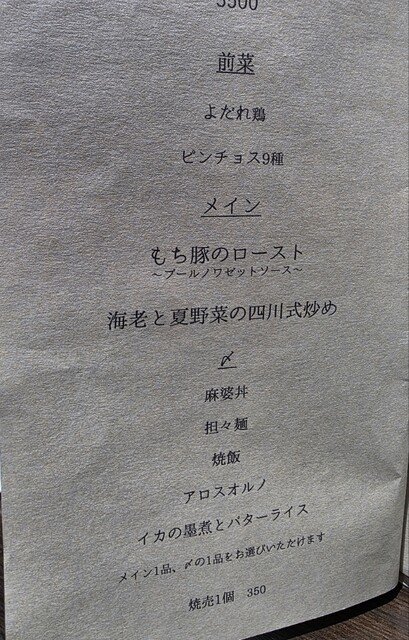 3500
前菜
よだれ鶏
ピンチョス9種
メイン
もち豚のロースト
～ブールノワゼットソース～
海老と夏野菜の四川式炒め
〆
麻婆丼
担々麺
焼飯
アロスオルノ
イカの墨煮とバターライス
メイン1品、〆の1品をお選びいただけます
焼売1個 350